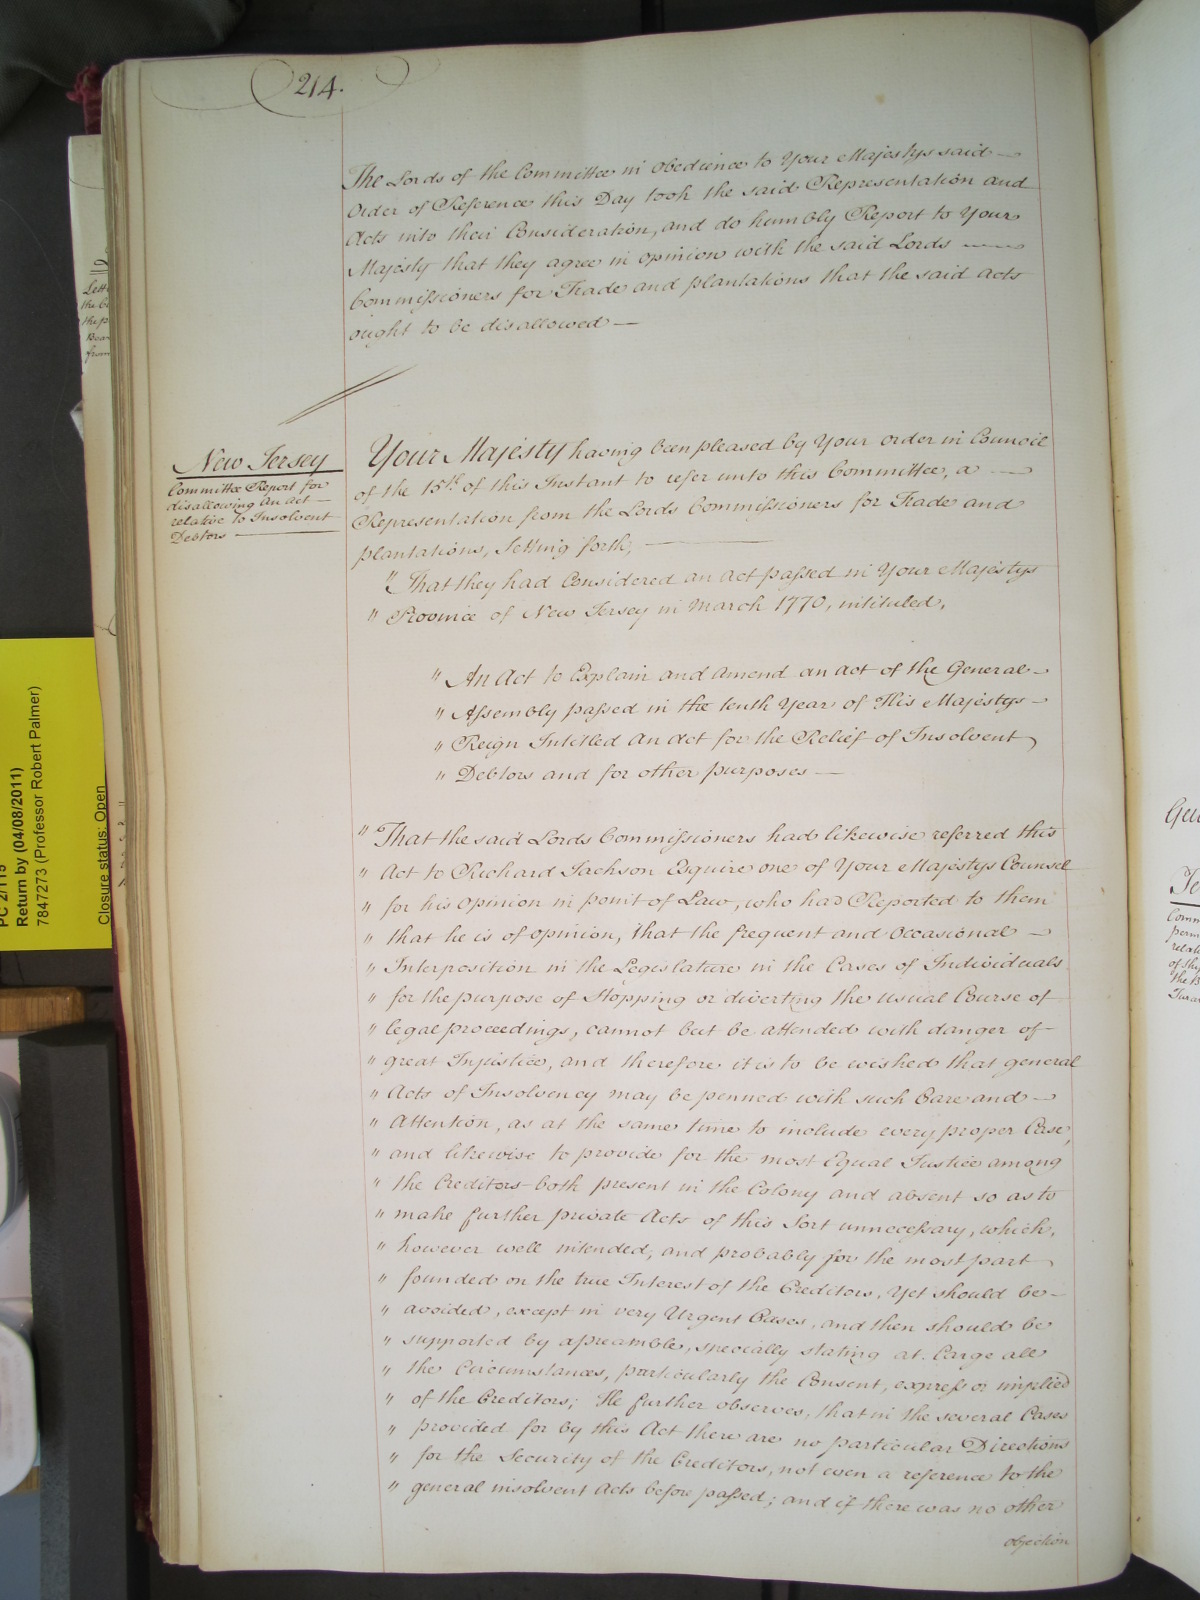 214.
The Lords of the Committee in Obedience to Your Majestys said
Order of Reference this Day took the said Representation and
Acts into their Consideration, and do humbly Report to Your
Majesty that they agree in opinion with the said Lords
Commissioners for Trade and plantations that the said Acts
ought to be disallowed —
New Jersey
Committee Report for
disallowing an Act —
relative to Insolvent
Debtors
Your Majesty having been pleased by Your order in Council
of the 15th of this Instant to refer unto this Committee, a
Representation from the Lords Commissioners for Trade and
plantations, Setting forth,
" That they had Considered an Act passed in Your Majestys
" Province of New Jersey in March 1770, intituled,
" An Act to Explain and Amend an Act of the General —
" Assembly passed in the tenth Year of His Majestys —
" Reign Intitled An Act for the Relief of Insolvent
" Debtors and for other purposes —
" That the said Lords Commissioners had likewise referred this
" Act to Richard Jackson Esquire one of Your Majestys Counsel
" for his Opinion in point of Law, who had Reported to them
" that he is of opinion, that the frequent and Occasional —
" Interposition in the Legislature in the Cases of Individuals
" for the purpose of Stopping or diverting the usual Course of
" legal proceedings, cannot but be attended with danger of
" great Injustice, and therefore it is to be wished that general
" Acts of Insolvency may be penned with such Care and —
" Attention, as at the same time to include every proper Case,
" and likewise to provide for the most Equal Justice among
" the Creditors both present in the Colony and absent so as to
" make further private Acts of this Sort unnecessary, which,
" however well intended, and probably for the most part
" founded on the true Interest of the Creditors, Yet should be —
" avoided, except in very Urgent Cases, and then should be
" supported by a preamble, specially stating at Large all
" the Circumstances, particularly the Consent, express or implied
" of the Creditors; He further observes, that in the several Cases
" provided for by this Act there are no particular Directions
" for the Security of the Creditors, not even a reference to the
" general insolvent Acts before passed; and if there was no other
objection
Return by (04/08/2011)
7847273 (Professor Robert Palmer)
Closure status: Open